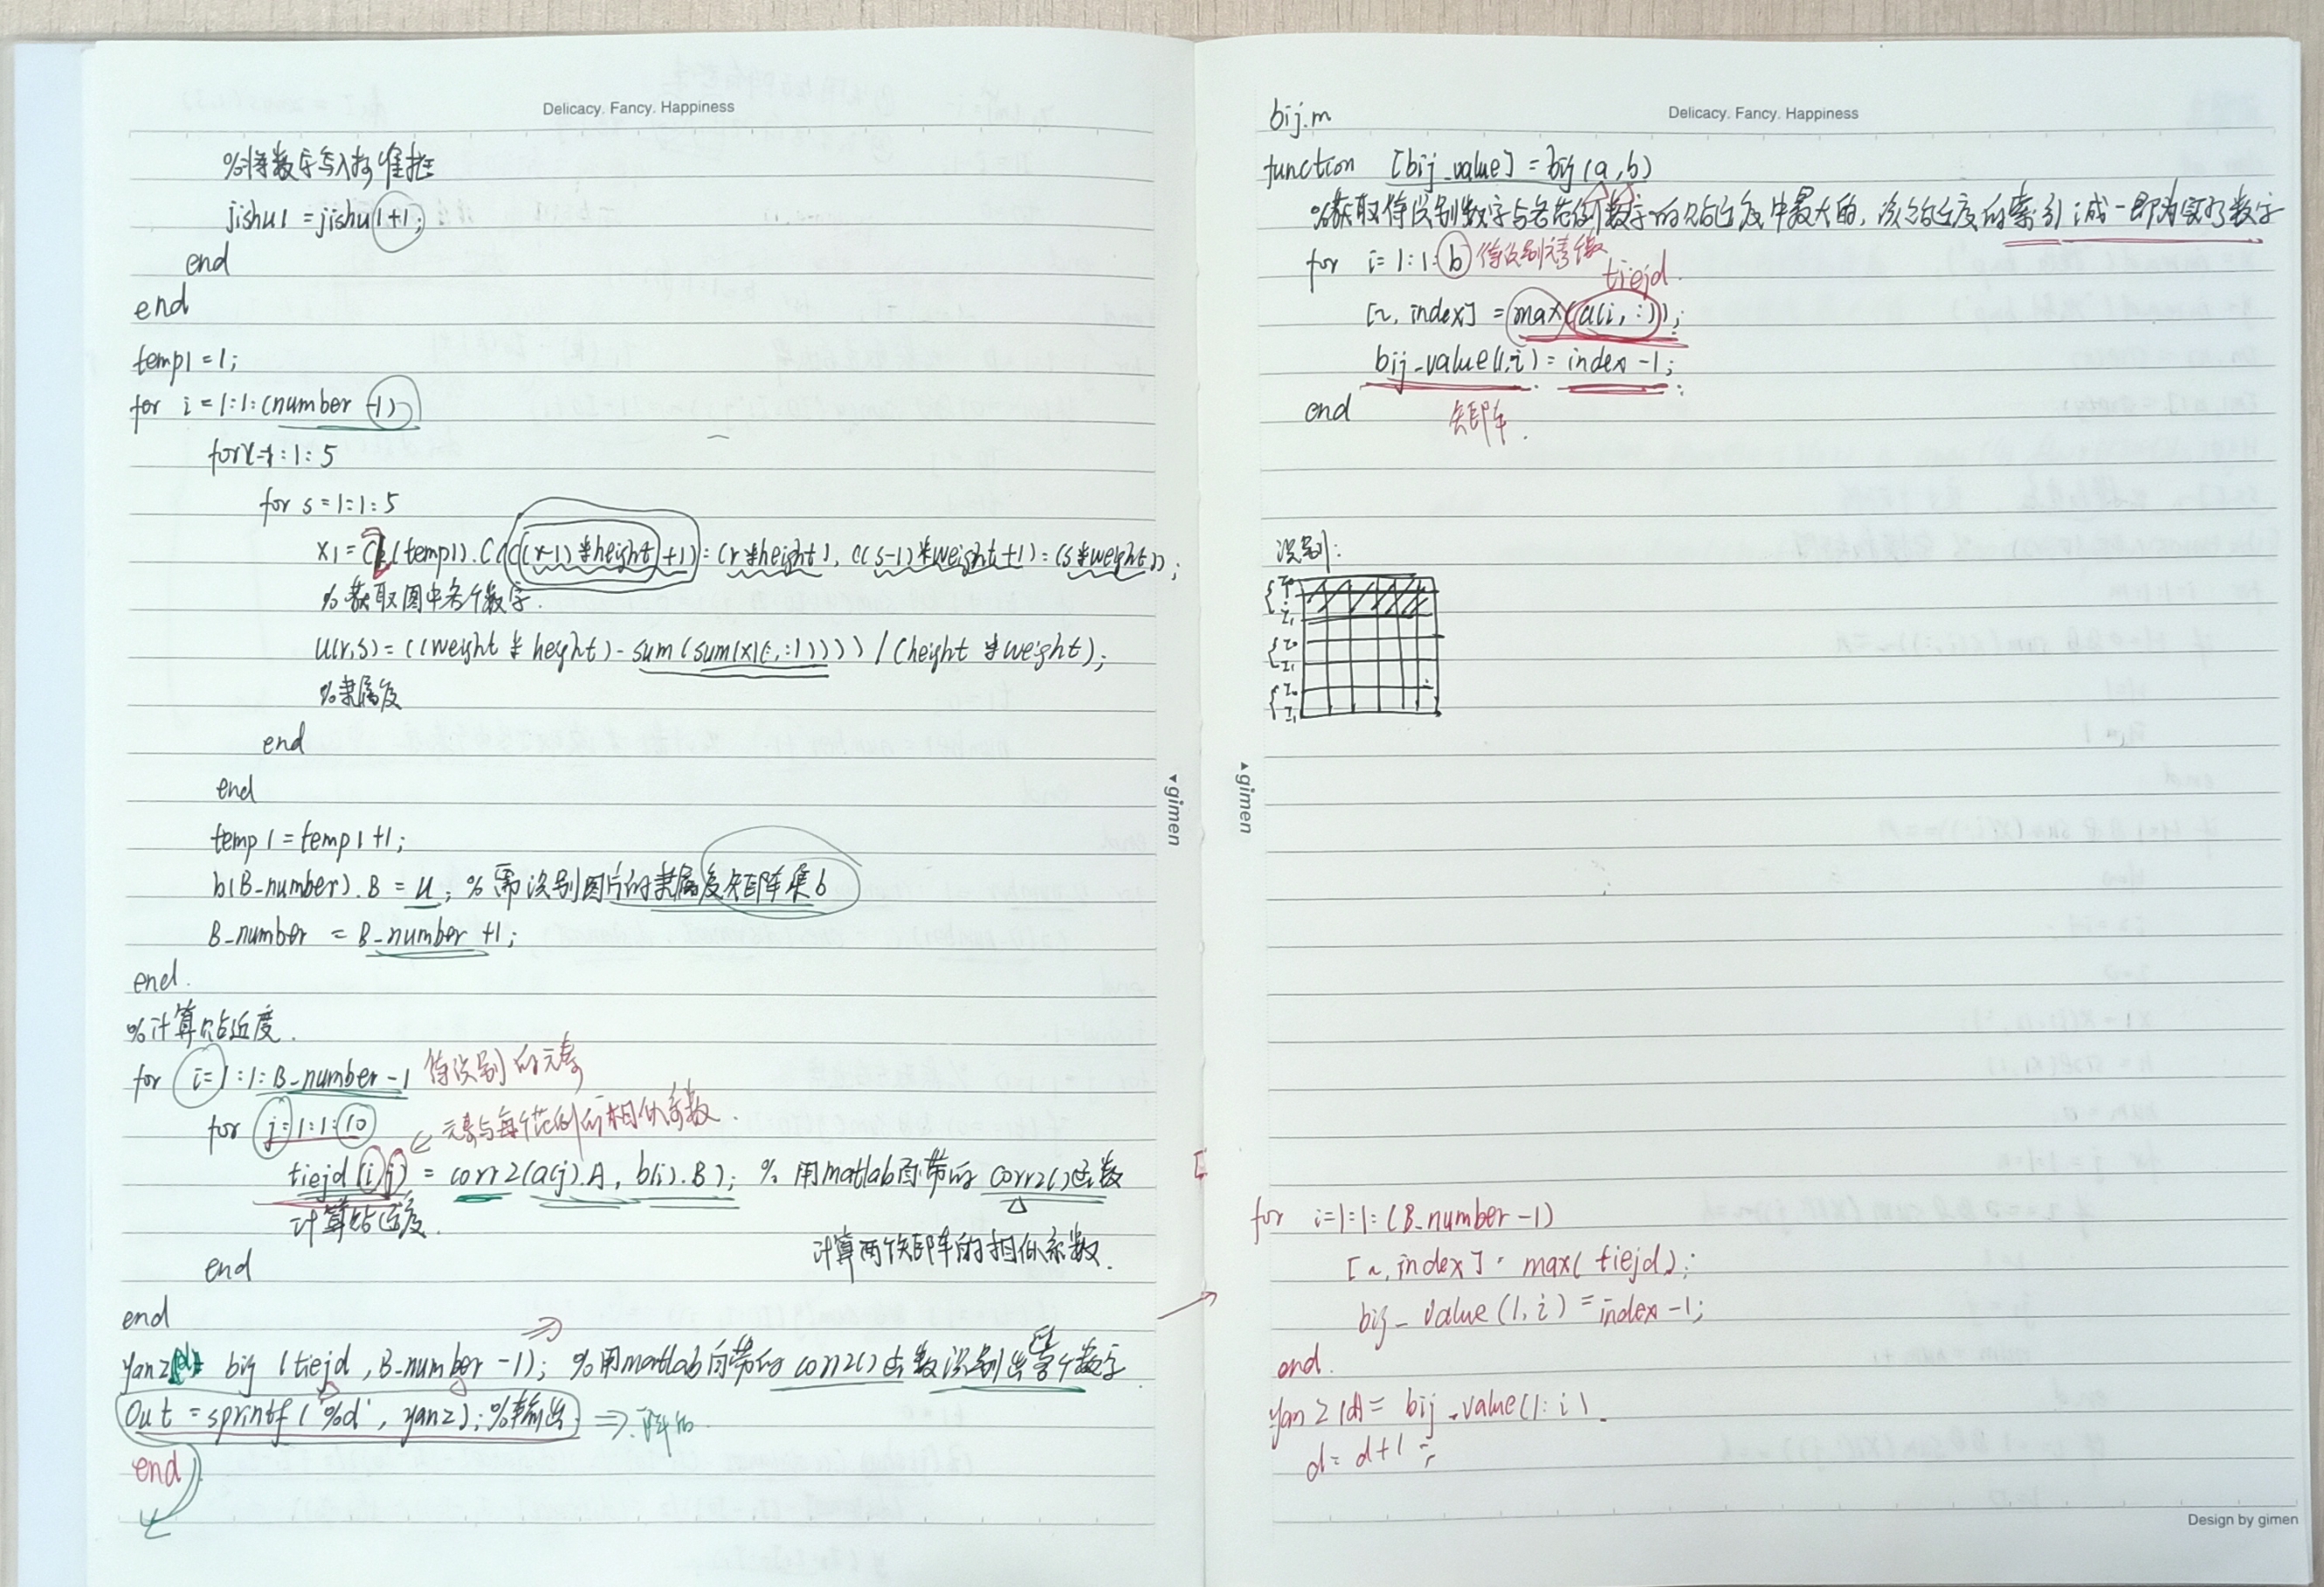 Delicacy. Fancy. Happiness
%将数字写入标准框
jishu1 = jishu1+1;
end
end
temp1 = 1;
for i = 1:1:(number -1)
for r=1:1:5
for s = 1:1:5
x1 = C(temp1).C(((r-1)*height)+1):(r*height), ((s-1)*weight+1):(s*weight));
%获取图中各个数字.
u(r,s) = ((weight * height) - sum(sum(x1(:,:)))) / (height *weight);
%隶属度
end
end
temp1 = temp1 +1;
b(B_number).B = u; % 需识别图片的隶属度矩阵集b
B_number = B_number +1;
end.
%计算贴近度.
for i=1:1:B_number-1 待识别的元素
for j=1:1:10
元素与每个范例的相似系数.
tiejd(i,j) = corr2(a(j).A, b(i).B); % 用matlab自带的 corr2()函数
计算贴近度.
计算两个矩阵的相似系数.
end
end
yanz(d)= bij (tiejd, B_number -1); %用matlab自带的 corr2()函数识别出各个数字
Out = sprintf('%d', yanz); %输出 ⇒
end
gimen
bij.m
Delicacy. Fancy. Happiness
function [bij_value] = bij(a,b)
%获取待识别数字与各范例数字的贴近度中最大的, 该贴近度的索引减一即为实际数字
for i=1:1:b 待识别元素
tiejd.
[~, index] = max(a(i,:));
bij_value(1,i) = index -1;
end
矩阵.
识别:
gimen
for i=1:1:(B_number-1)
[~, index] = max(tiejd);
bij_value(1,i) = index-1;
end.
yanz(d)= bij_value(1:i).
d= d+1;
Design by gimen